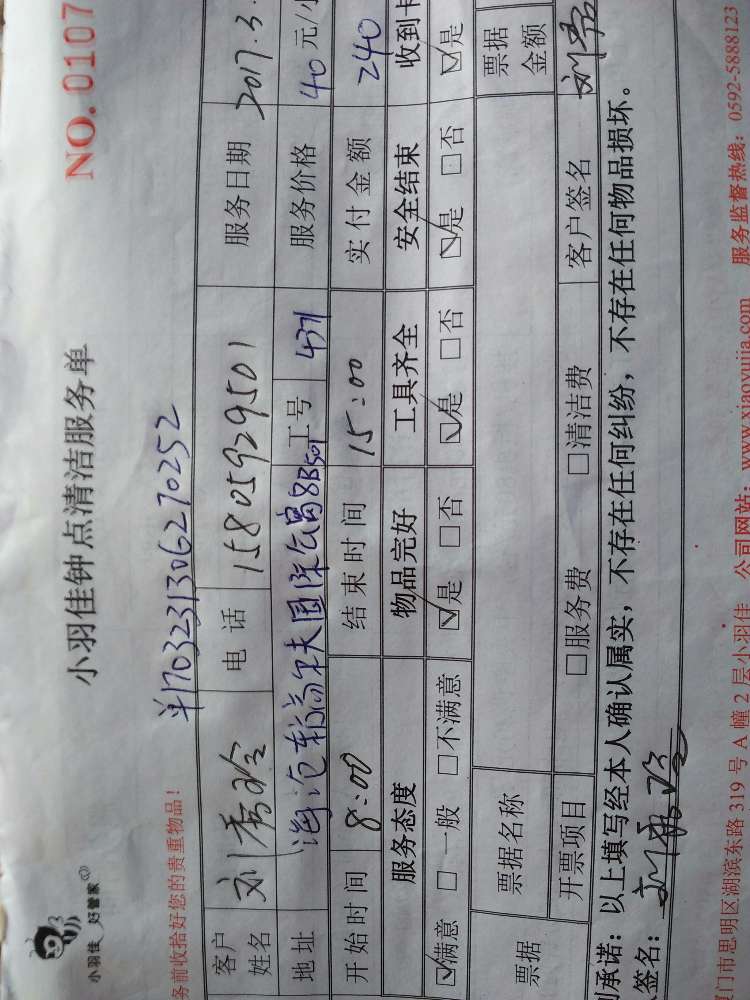 小羽佳 好管家
小羽佳钟点清洁服务单
NO.0107
务前收拾好您的贵重物品!
单1703231306270252
客户姓名 刘秀玲 电话 15805929501 服务日期 2017.3.
地址 高尔夫国际公寓8B501 工号 4371 服务价格 40元/小
开始时间 8:00 结束时间 15:00 实付金额 240
服务态度 物品完好 工具齐全 安全结束 收到卡
☑满意 □一般 □不满意 ☑是 □否 ☑是 □否 ☑是 □否 ☑是
票据 票据名称 票据金额
开票项目 □服务费 □清洁费 客户签名 刘秀
承诺:以上填写经本人确认属实,不存在任何纠纷,不存在任何物品损坏。
签名:刘秀玲
门市思明区湖滨东路319号A幢2层小羽佳 公司网站:www.xiaoyujia.com 服务监督热线:0592-5888123